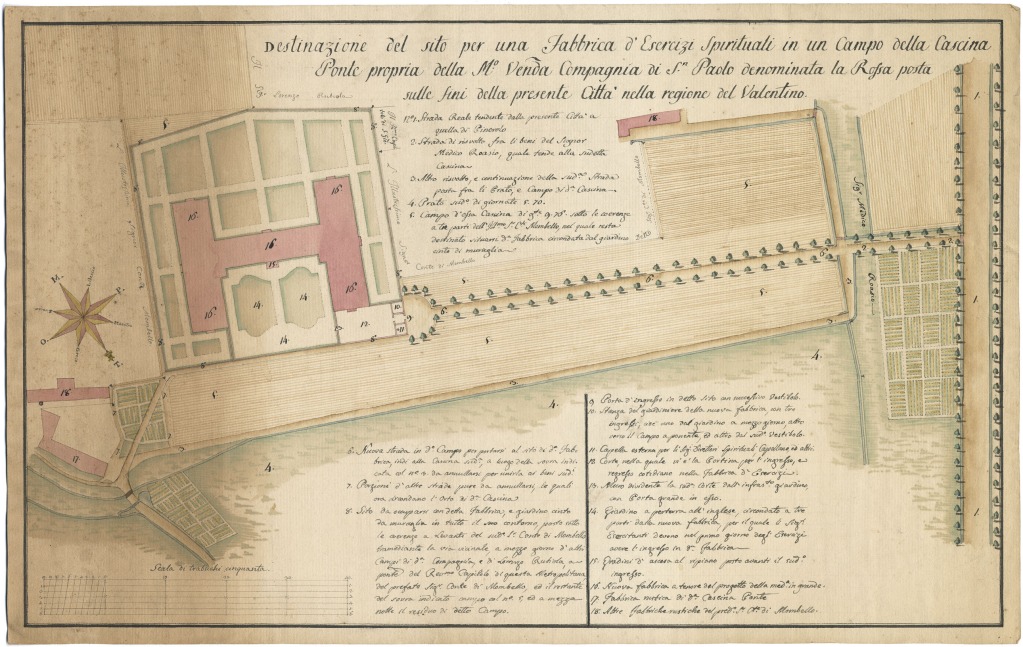 Destinazione del sito per una Fabbrica d'Esercizi Spirituali in un Campo della Cascina
Ponte propria della Mº Venda Compagnia di S.n Paolo denominata la Rossa posta
sulle fini della presente Città nella regione del Valentino.
Sig. Lorenzo Rubiola
1. Strada Reale tendente dalla presente Città a
quella di Pinerolo
2. Strada di risvolto fra li beni del Signor
Medico Roasio, quale tende alla sudetta
Cascina
3. Altro risvolto, e continuazione della sud.a Strada
posta fra li Prato, e Campo di d.a Cascina
4. Prato sud.o di giornate 5. 70.
5. Campo d'essa Cascina di g.te 9. 75. sotto le coerenze
a tre parti dell' S.r C.te Mombello, nel quale resta
destinato situarsi d.a fabbrica circondata dal giardino
cinto di muraglia
Conte di Mombello
Sig. Medico
Roasio
6. Nuova strada in d.o Campo per portarsi al sito di d.a Fab-
brica, indi alla Cascina, a luogo della sovra indi-
cata col nº 3 da annullarsi per unirla ai beni sud.i
7. Porzioni d'altre strade pure da annullarsi, le quali
circondano l'Orto di d.a Cascina
8. Sito da occuparsi con detta Fabbrica, e giardino cinto
da muraglia in tutto il suo contorno, posto sotto
le coerenze a Levante del sud.o S.r Conte di Mombello
tramediante la via vicinale, a mezzo giorno d'altri
Campi di d.a Compagnia, e di Lorenzo Rubiola, a
ponente del Rev.mo Capitolo di questa Metropolitana
del prefato Sig.r Conte di Mombello, ed il restante
del sovra indicato campo col nº 5, ed a mezza-
notte il residuo di detto Campo.
9. Porta d'ingresso in detto sito con successivo Vestibolo.
10. Stanza del giardiniere della nuova fabbrica con tre
ingressi, cioè uno del giardino a mezzo giorno altro
verso il Campo a ponente, ed altro del sud.o Vestibolo.
11. Capella esterna per li Sig.i Direttori Spirituali Capellano ed altri.
12. Corte nella quale vi è la Portina per l'ingresso, e
regresso cotidiano nella Fabbrica d'Esercizi.
13. Muro dividente la sud.a Corte dall' infras.to giardino
con Porta grande in esso.
14. Giardino a parterra all' inglese, circondato a tre
parti dalla nuova fabbrica, per il quale li Sig.i
Esercitanti devono nel primo giorno degli Esercizi
avere l'ingresso in d.a fabbrica
15. Gradini d'ascesa al ripiano posto avanti il sud.o
ingresso.
16. Nuova fabbrica a tenore del progetto della med.a in grande.
17. Fabbrica rustica di d.a Cascina Ponte
18. Altre fabbriche rustiche del pred.o S.r C.te di Mombello.
Scala di trabuchi cinquanta